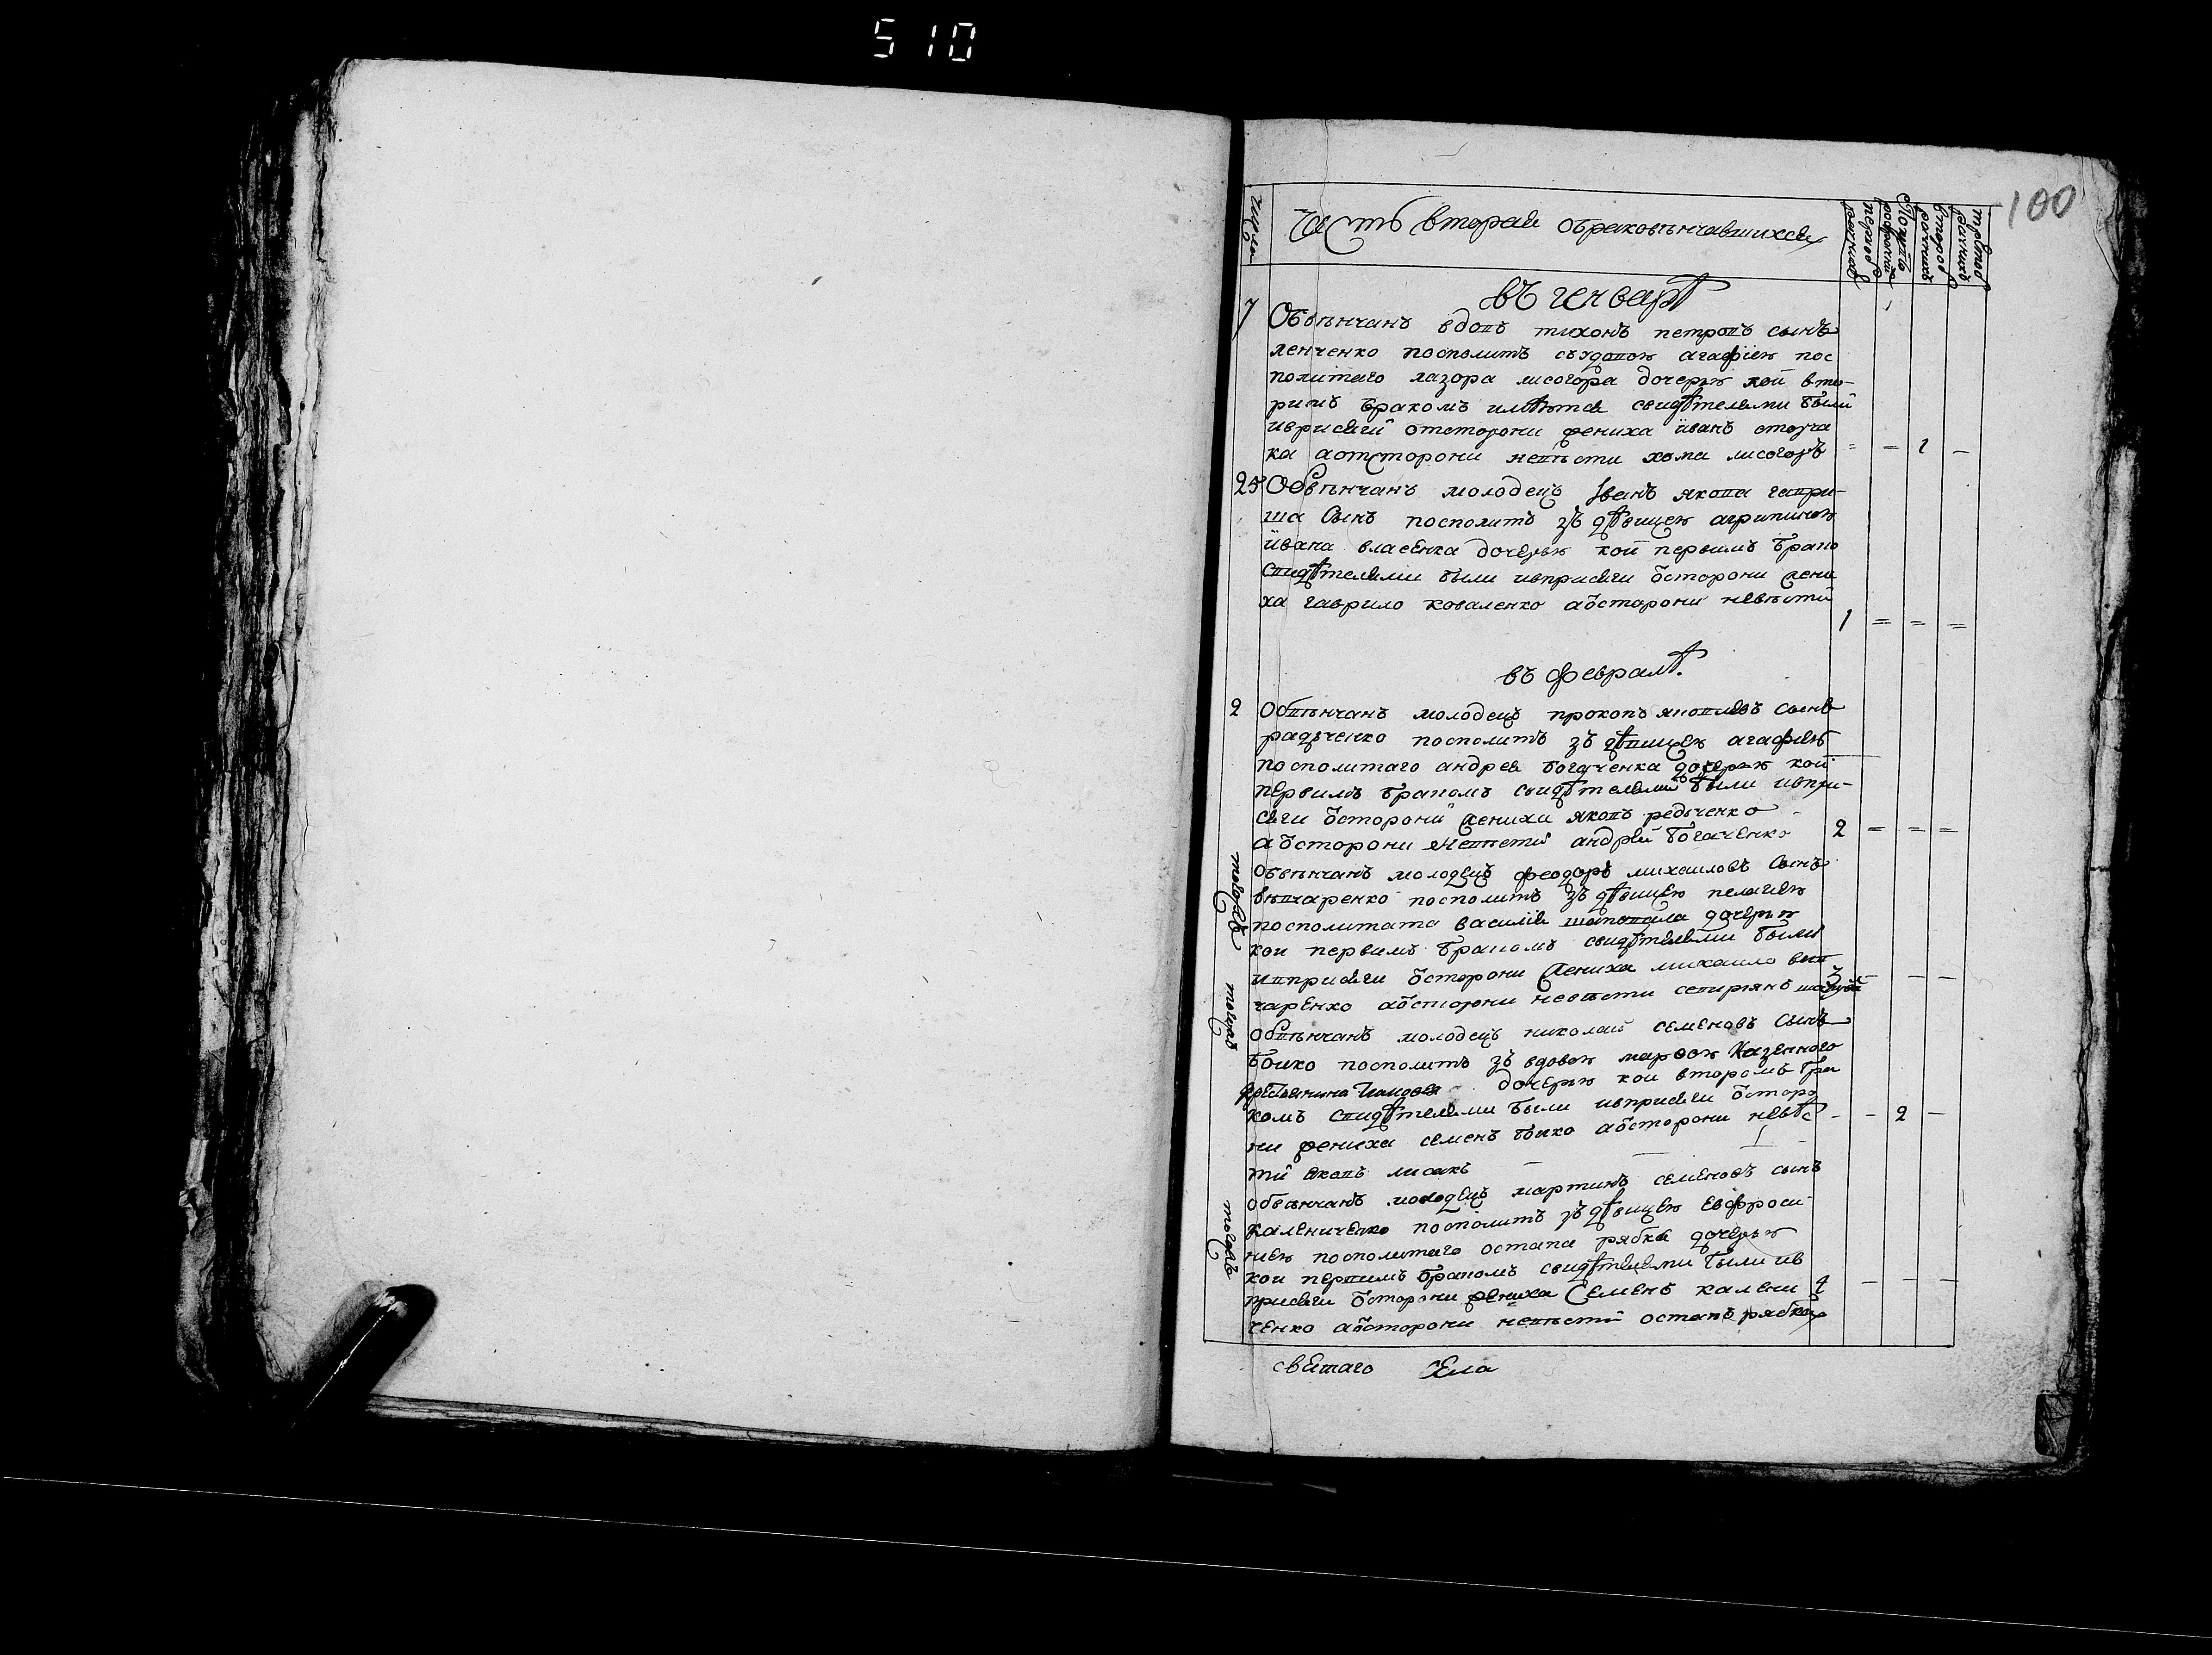 510
100
Число
Часть вторая обраковѣнчавшихся
въ генварѣ
7 Обвѣнчанъ вдовъ тихонъ петровъ сынъ
ленченко посполитъ съудовою агафіею пос
политаго лазора лисогора дочерью кои вто-
римъ бракомъ свидѣтелями были
ивприсяги отсторони жениха іванъ
ка аотсторони невѣсти хома лисогоръ = – 1 –
25 Обвѣнчанъ молодецъ Іванъ якова гаври-
ша Сынъ посполитъ зъ дѣвицею агрипиною
івана власенка дочерью кои первимъ брако
свидѣтелями были ивприсяги ѿсторони жени
ха гаврило коваленко аѿсторони невѣсти
1 = = =
въ февралѣ.
2 Обвѣнчанъ молодецъ прокопъ яковлевъ сынъ
радченко посполитъ зъ дѣвицею агафіею
посполитаго андрея богаченка дочерью кои
первимъ бракомъ свидѣтелями были ивпри-
сяги ѿсторони жениха яковъ редьченко
аѿсторони невѣсти андрѣй богаченко 2 = = =
тогожъ обвѣнчанъ молодецъ феодоръ михаиловъ Сынъ
вѣвчаренко посполитъ зъ дѣвицею пелагією
посполитаго василія шаповала дочерью
кои первимъ бракомъ свидѣтелями были
ивприсяги ѿсторони жениха михаило вѣв
чаренко аѿсторони невѣсти 3 – – –
тогожъ обвѣнчанъ молодецъ николай семеновъ сынъ
боико посполитъ зъ вдовою марѳою Казенного
дочерью кои вторимъ бра
комъ свидѣтелями были ивприсяги ѿсторо – – 2 –
ни жениха семенъ боико аѿсторони невѣс
ти яковъ лисакъ
тогожъ обвѣнчанъ молодецъ мартинъ семеновъ сынъ
калениченко посполитъ зъ дѣвицею евфроси
ніею посполитаго остапа рябка дочерью
кои первимъ бракомъ свидѣтелями были ив
присяги ѿсторони жениха Семенъ калени 4 – – –
ченко аѿсторони невѣсти остапъ рябко
Села